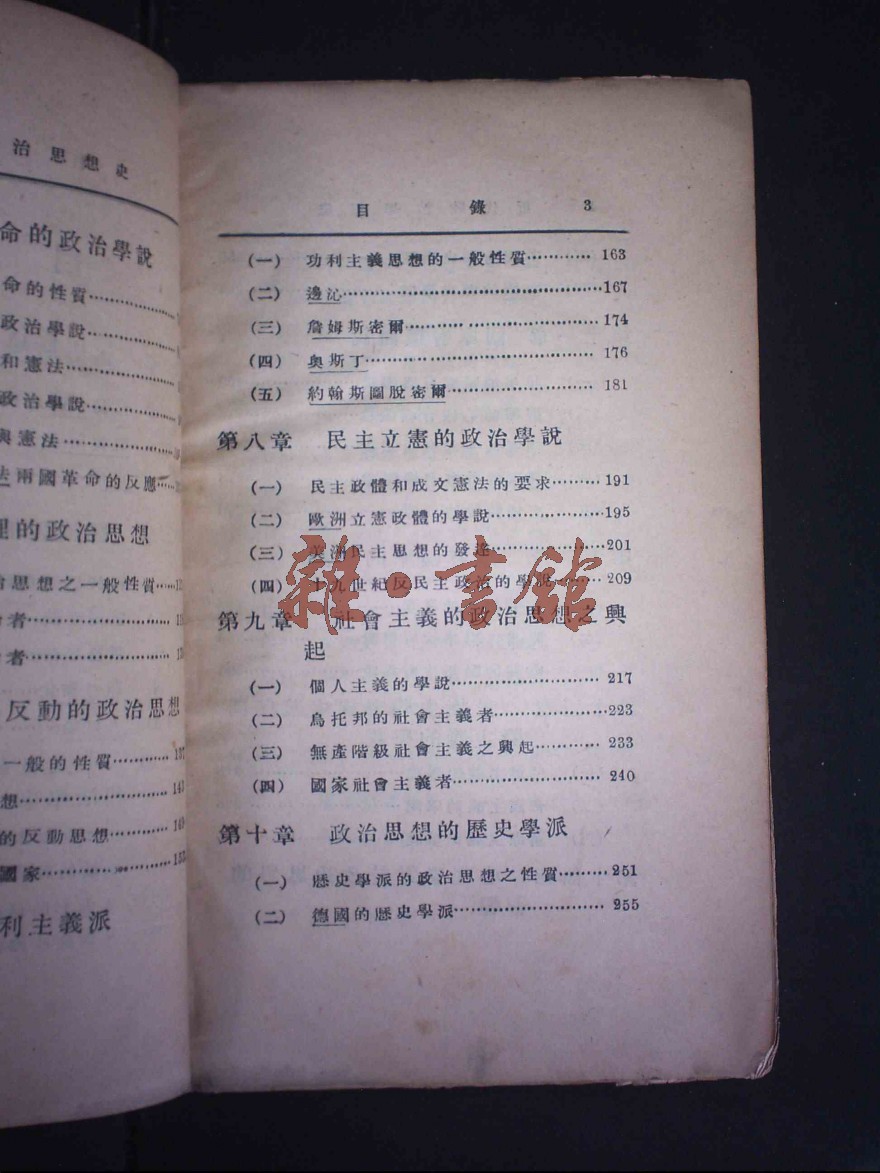 治思想史
命的政治學說
命的性質…………
政治學說…………
和憲法…………
政治學說…………
與憲法…………
法兩國革命的反應……
的政治思想
思想之一般性質……
者…………
者…………
反動的政治思想
一般的性質…………137
想…………
的反動思想…………149
國家…………
利主義派
目錄 3
(一) 功利主義思想的一般性質…………163
(二) 邊沁…………167
(三) 詹姆斯密爾…………174
(四) 奧斯丁…………176
(五) 約翰斯圖脫密爾…………181
第八章 民主立憲的政治學說
(一) 民主政體和成文憲法的要求………191
(二) 歐洲立憲政體的學說…………195
(三) 美洲民主思想的發達…………201
(四) 十九世紀反民主政治的學說……209
第九章 社會主義的政治思想之興
起
(一) 個人主義的學說…………217
(二) 烏托邦的社會主義者…………223
(三) 無產階級社會主義之興起………233
(四) 國家社會主義者…………240
第十章 政治思想的歷史學派
(一) 歷史學派的政治思想之性質………251
(二) 德國的歷史學派…………255
雜·書館